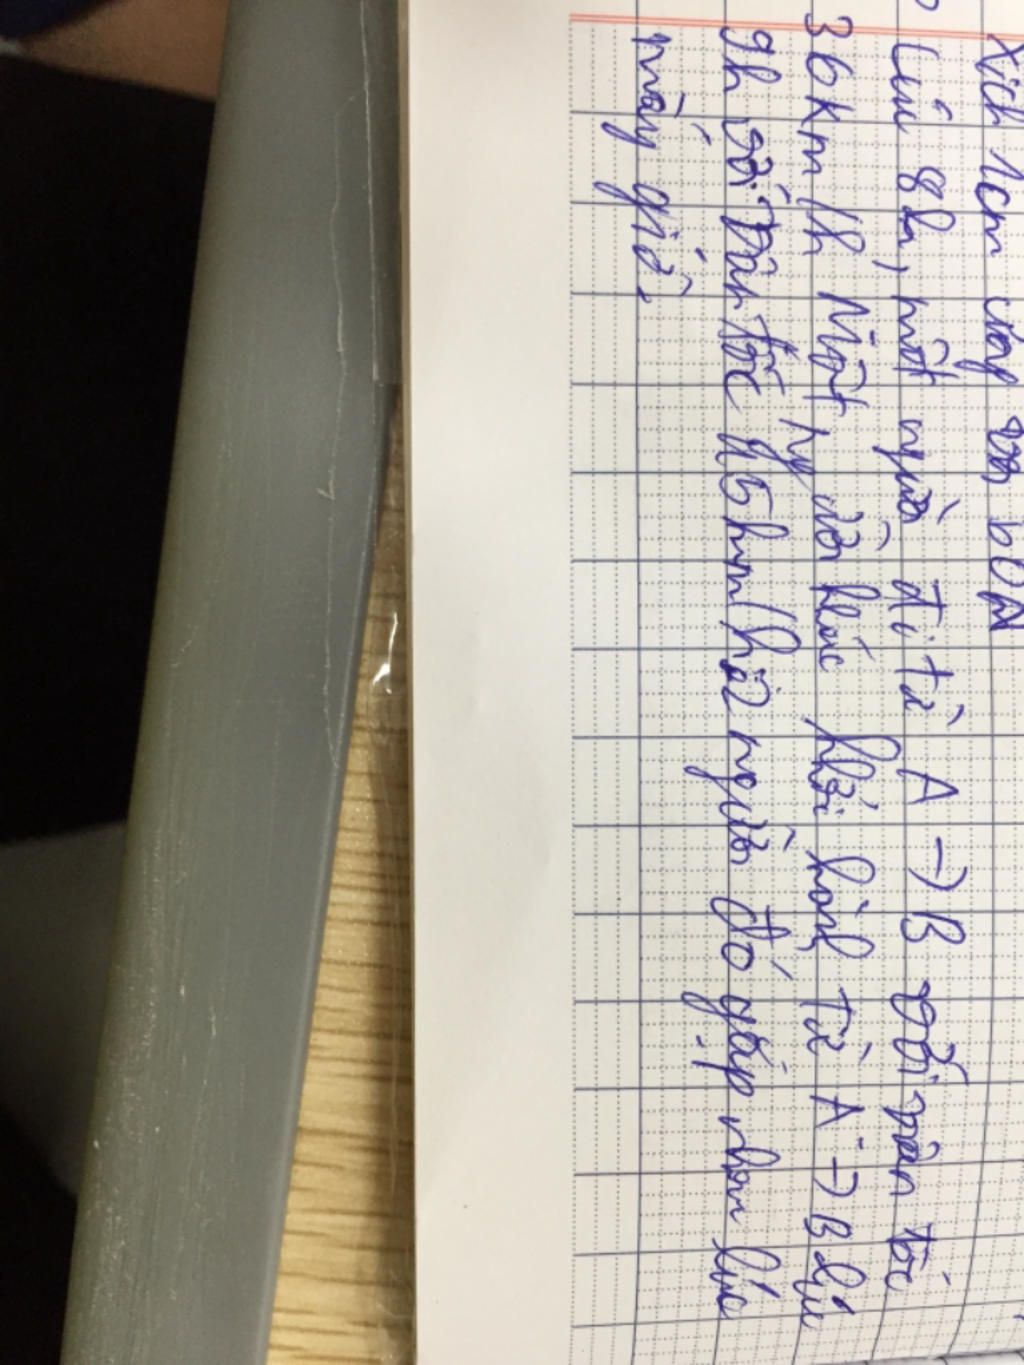 xích 1cm
Lúc 8h, một người đi từ A → B với vận tốc
36 km/h Một người khác khởi hành từ A → B lúc
9h với vận tốc 45 km/h 2 người đó gặp nhau lúc
mấy giờ.